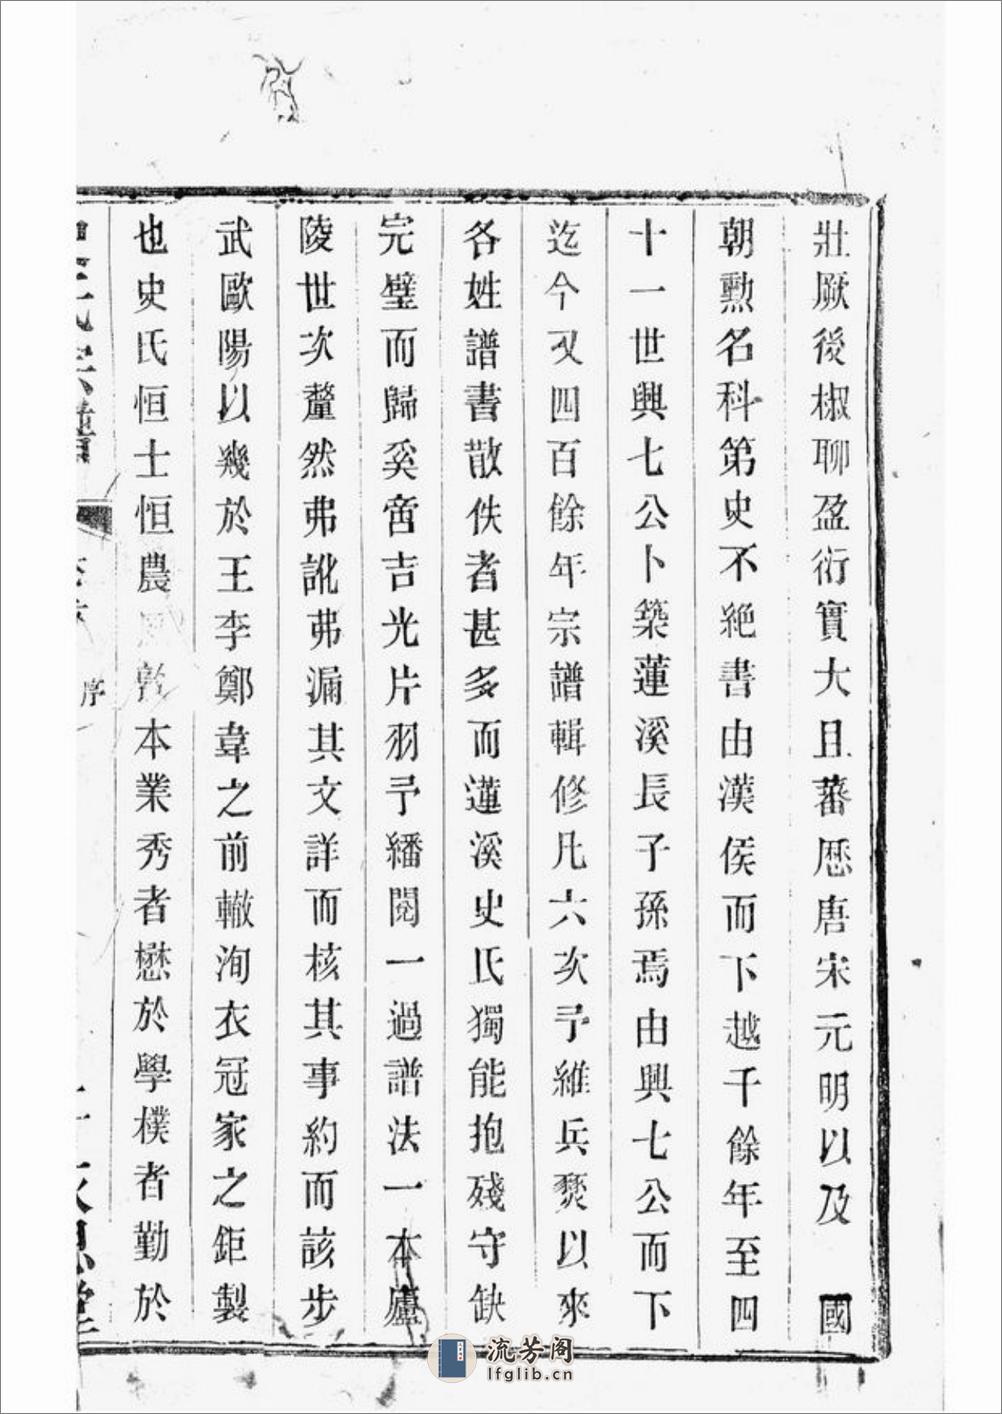 壯厥後椒聊盈衍實大且蕃歷唐宋元明以及 國
朝勲名科第史不絶書由漢侯而下越千餘年至四
十一世興七公卜築蓮溪長子孫焉由興七公而下
迄今又四百餘年宗譜輯修凡六次予維兵燹以來
各姓譜書散佚者甚多而蓮溪史氏獨能抱殘守缺
完璧而歸奚啻吉光片羽予繙閱一過譜法一本廬
陵世次釐然弗訛弗漏其文詳而核其事約而該步
武歐陽以幾於王李鄭韋之前轍洵衣冠家之鉅製
也史氏恒士恒農敦本業秀者懋於學樸者勤於
氏宗譜
序
流芳阁
lfglib.cn